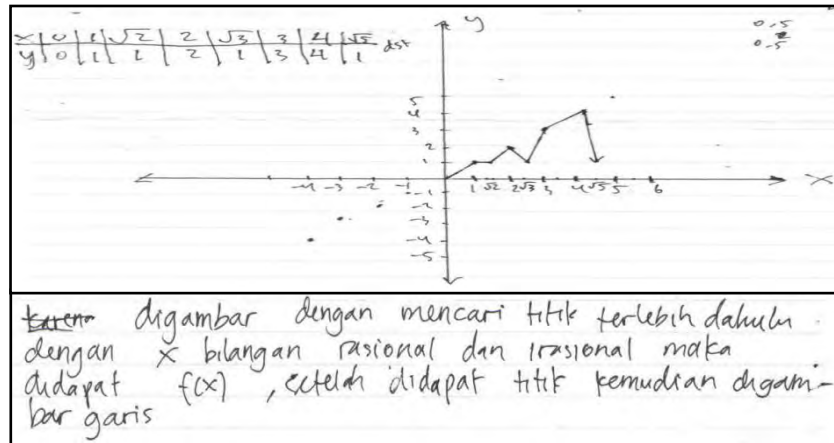 x | 0 | 1 | √2 | 2 | √3 | 3 | 4 | √5
y | 0 | 1 | 1 | 2 | 1 | 3 | 4 | 1 dst
y
0,5
0,5
5
4
3
2
1
-4 -3 -2 -1 1 √2 2 √3 3 4 √5 5 6 x
-1
-2
-3
-4
-5
karena digambar dengan mencari titik terlebih dahulu
dengan x bilangan rasional dan irasional maka
didapat f(x), setelah didapat titik kemudian digam-
bar garis